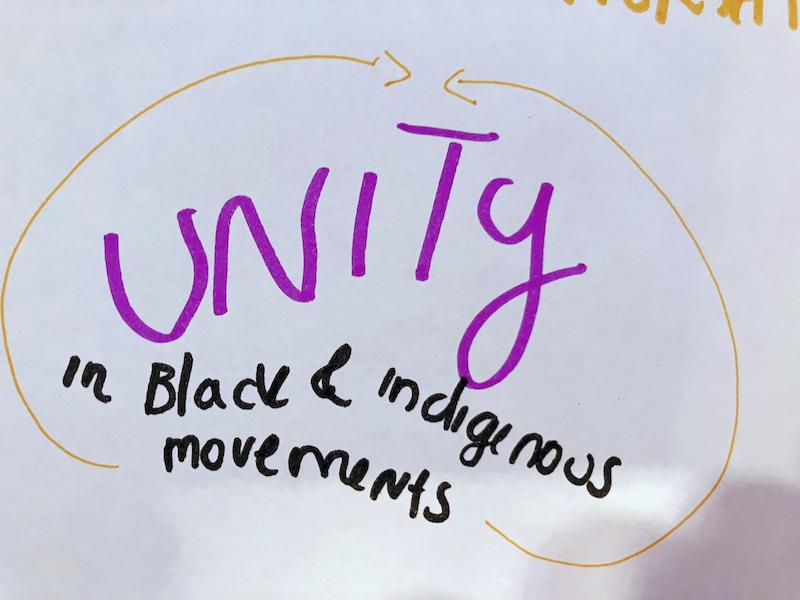 UNITy
in Black & indigenous
movements